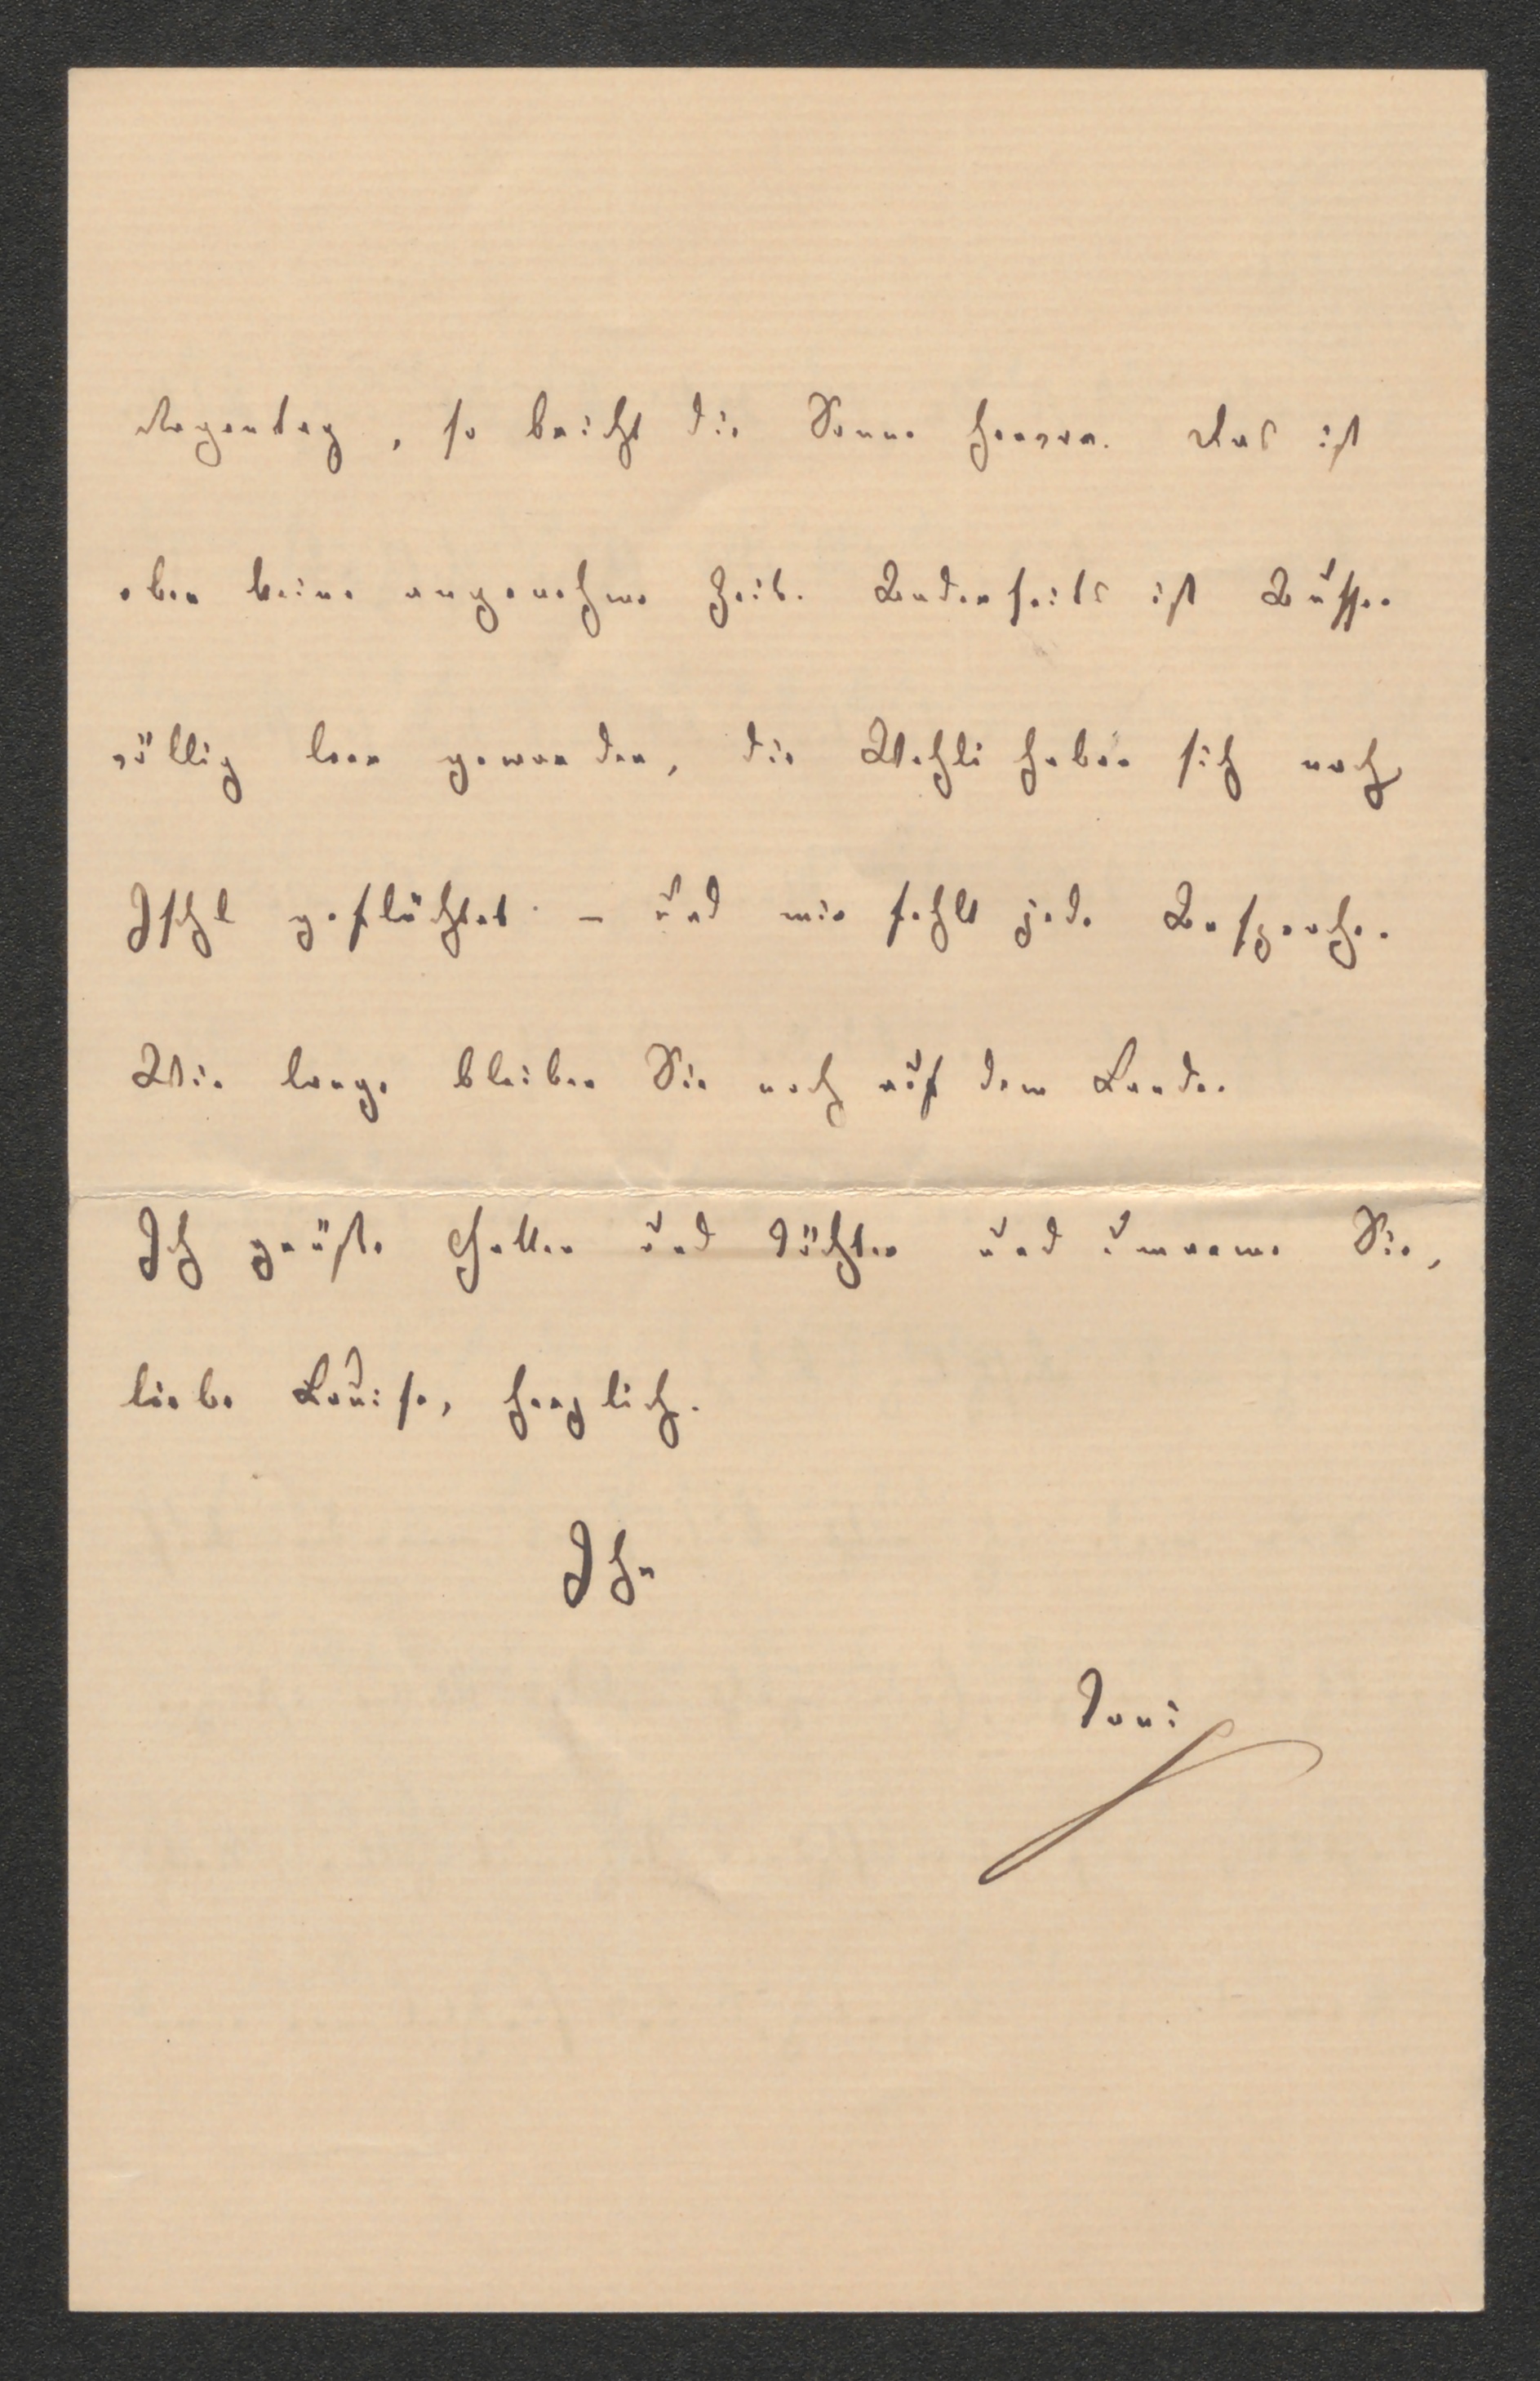 Regentag, so bricht die Sonne hervor. Das ist
eben keine angenehme Zeit. Anderseits ist Aussee
völlig leer geworden, die Wehli haben sich nach
Ischl geflüchtet – und mir fehlt jede Ansprache.
Wie lange bleiben Sie noch auf dem Lande.
Ich grüße Gatten und Töchter und umarme Sie,
liebe Louise, herzlich.
Ihr
Toni